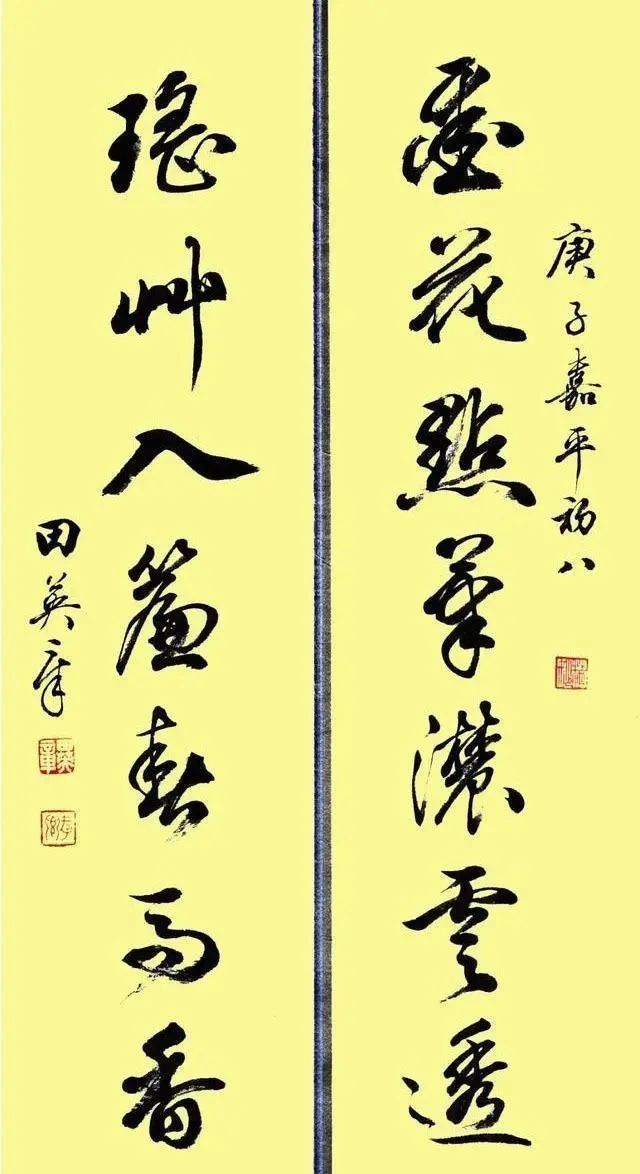 庚子嘉平初八
墨花點筆濃雲透
瑤艸入簾春雨香
田英章